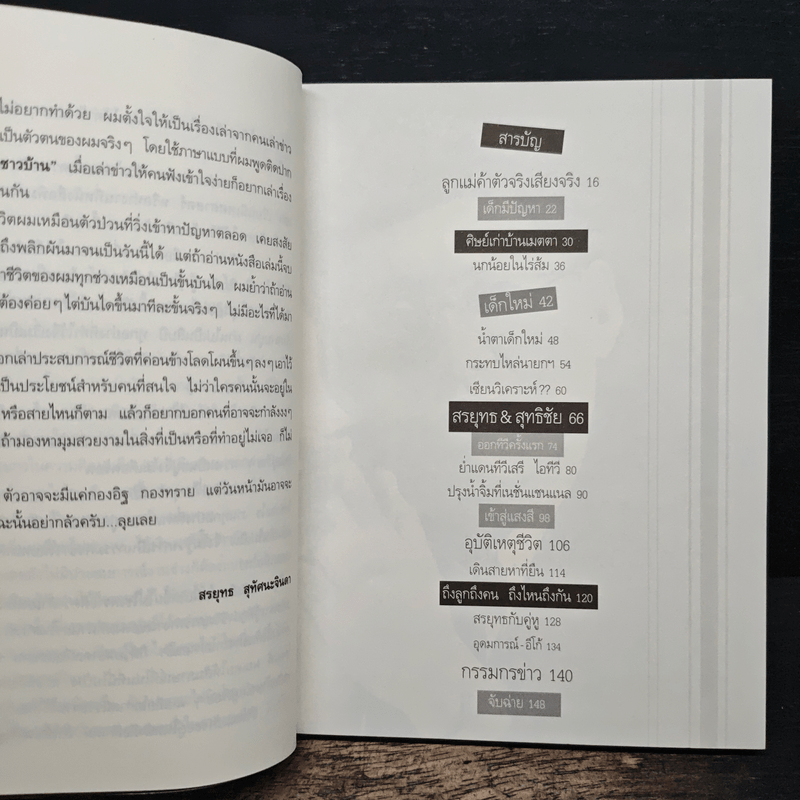 ไม่อยากทำด้วย ผมตั้งใจให้เป็นเรื่องเล่าจากคนเล่าข่าว
เป็นตัวตนของผมจริงๆ โดยใช้ภาษาแบบที่ผมพูดติดปาก
ชาวบ้าน" เมื่อเล่าข่าวให้คนฟังเข้าใจง่ายก็อยากเล่าเรื่อง
นกัน
วิตผมเหมือนตัวป่วนที่วิ่งเข้าหาปัญหาตลอด เคยสงสัย
ถึงพลิกผันมาจนเป็นวันนี้ได้ แต่ถ้าอ่านหนังสือเล่มนี้จบ
าชีวิตของผมทุกช่วงเหมือนเป็นขั้นบันได ผมย้ำว่าถ้าอ่าน
ต้องค่อยๆ ไต่บันไดขึ้นมาทีละขั้นจริงๆ ไม่มีอะไรที่ได้มา
อกเล่าประสบการณ์ชีวิตที่ค่อนข้างโลดโผนขึ้นๆ ลงๆ เอาไว้
เป็นประโยชน์สำหรับคนที่สนใจ ไม่ว่าใครคนนั้นจะอยู่ใน
หรือสายไหนก็ตาม แล้วก็อยากบอกคนที่อาจจะกำลังงงๆ
ถ้ามองหามุมสวยงามในสิ่งที่เป็นหรือที่ทำอยู่ไม่เจอ ก็ไม่
ตัวอาจจะมีแค่กองอิฐ กองทราย แต่วันหน้ามันอาจจะ
ฉะนั้นอย่ากลัวครับ...ลุยเลย
สรยุทธ สุทัศนะจินดา
สารบัญ
ลูกแม่ค้าตัวจริงเสียงจริง 16
เด็กมีปัญหา 22
ศิษย์เก่าบ้านเมตตา 30
นกน้อยในไร่ส้ม 36
เด็กใหม่ 42
น้ำตาเด็กใหม่ 48
กระทบไหล่นายกฯ 54
เซียนวิเคราะห์?? 60
สรยุทธ & สุทธิชัย 66
ออกทีวีครั้งแรก 74
ย่ำแดนทีวีเสรี ไอทีวี 80
ปรุงน้ำจิ้มที่เนชั่นแชนแนล 90
เข้าสู่แสงสี 98
อุบัติเหตุชีวิต 106
เดินสายหาที่ยืน 114
ถึงลูกถึงคน ถึงไหนถึงกัน 120
สรยุทธกับคู่หู 128
อุดมการณ์-อีโก้ 134
กรรมกรข่าว 140
จับฉ่าย 148